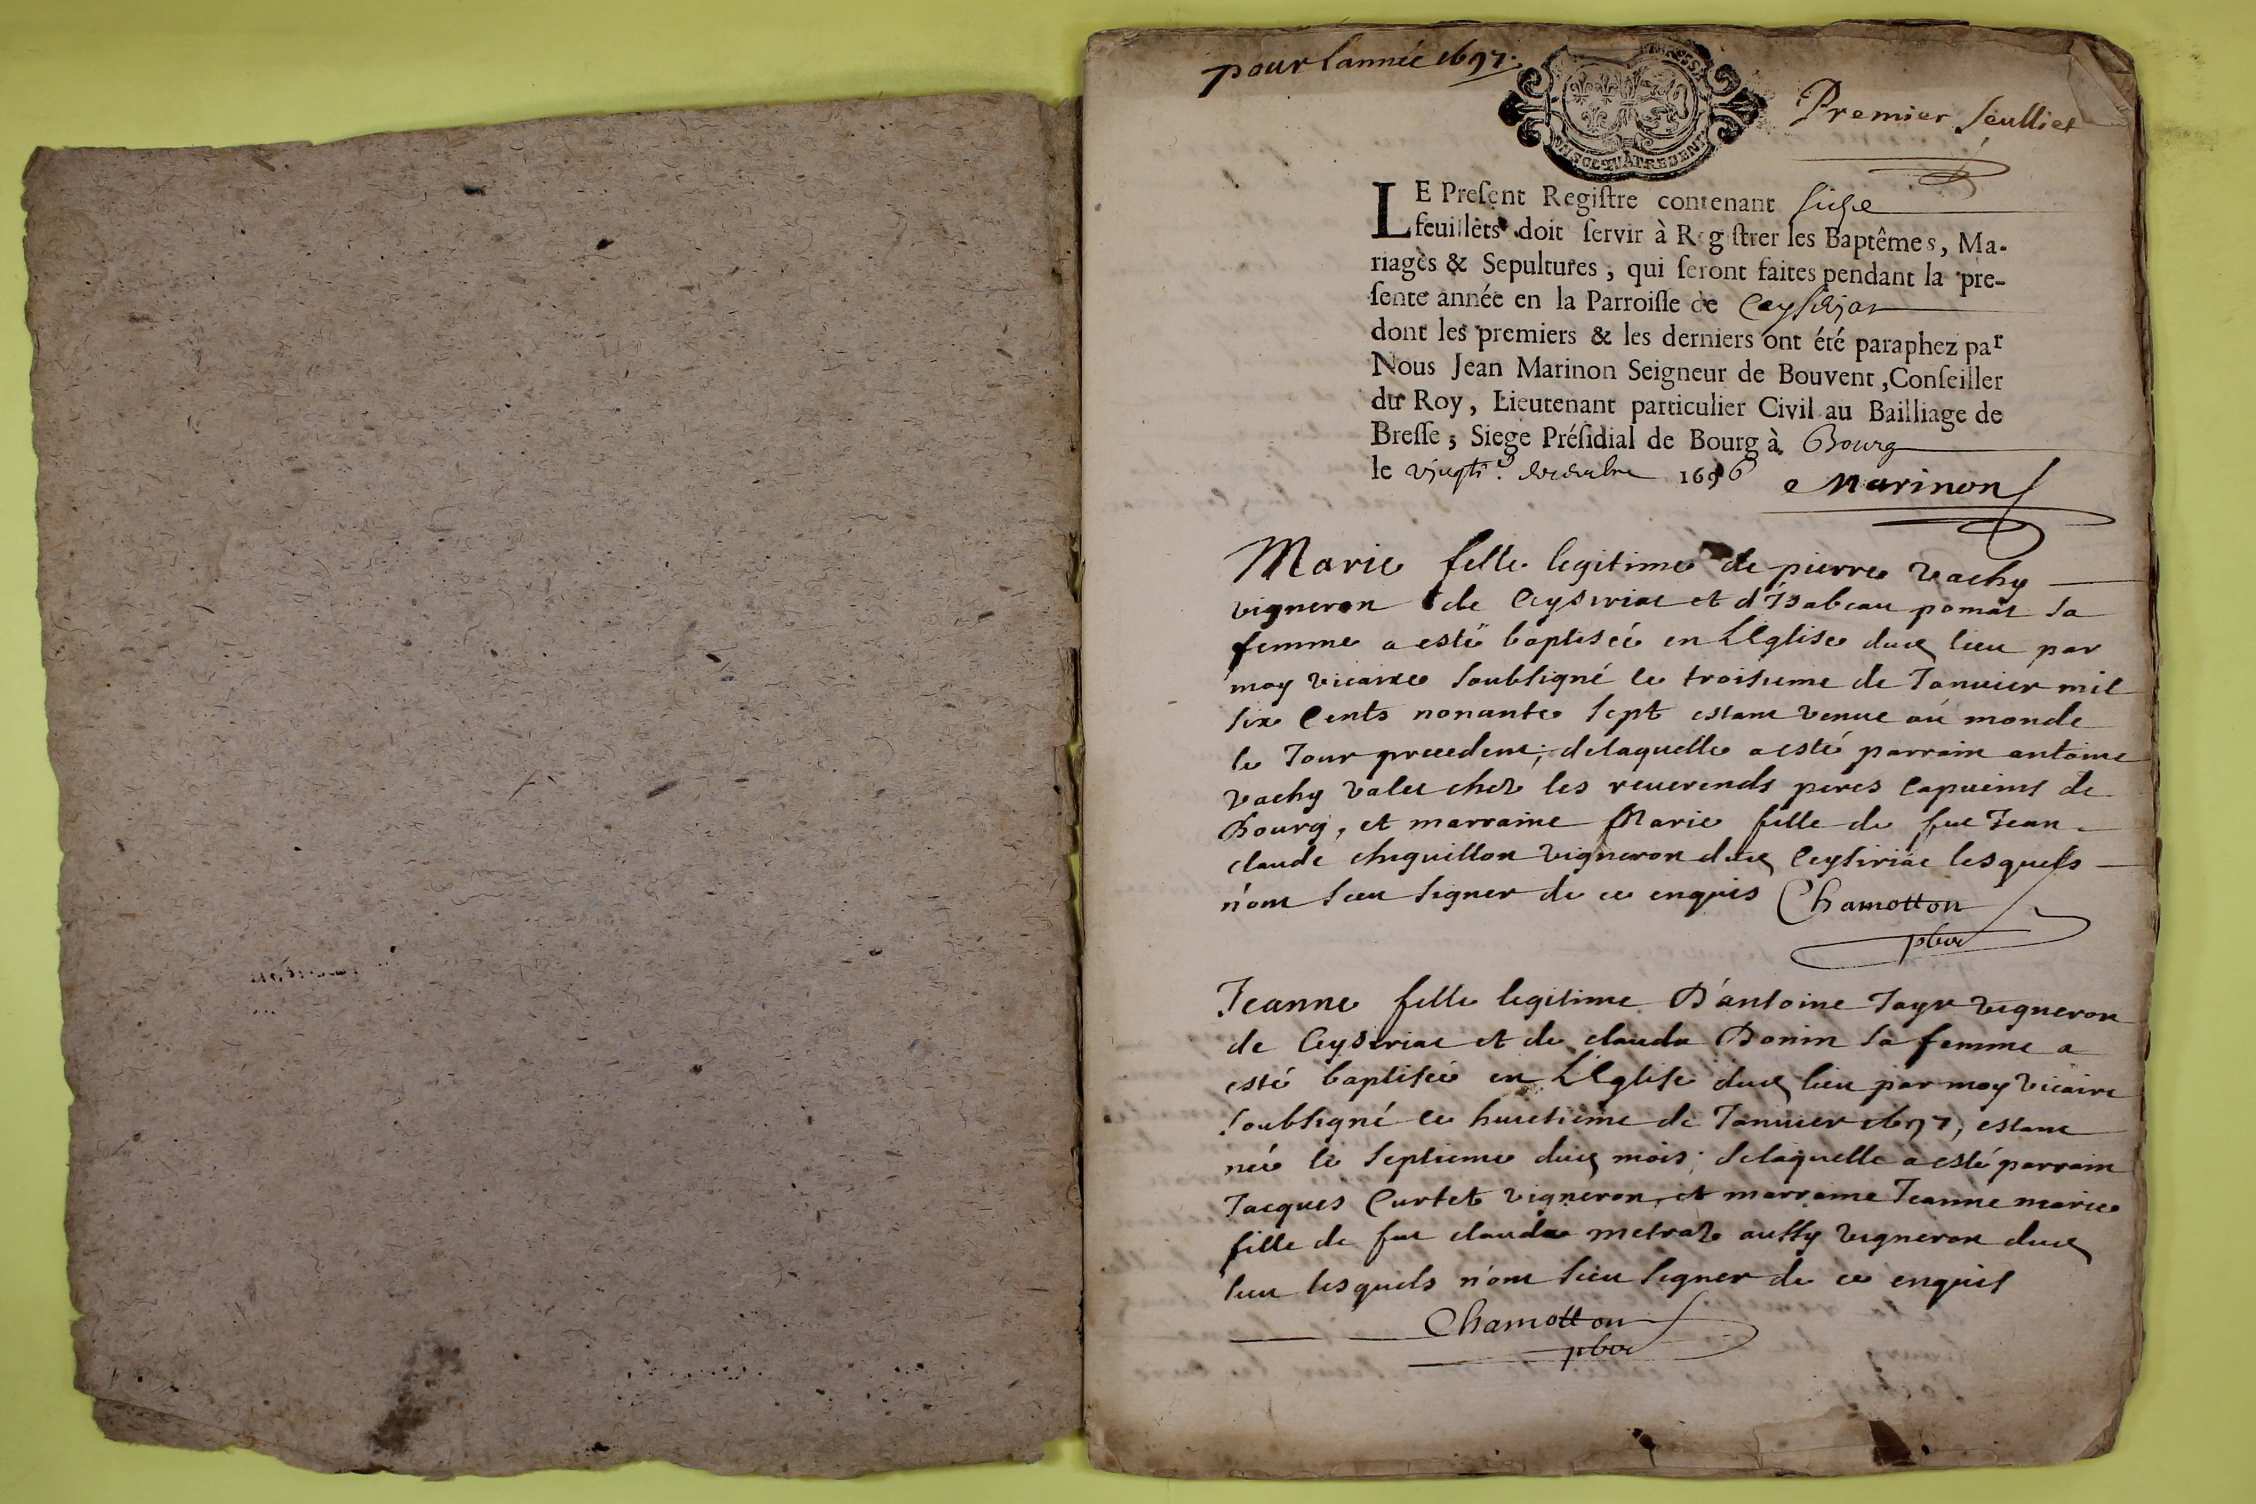 pour l'année 1697.
Premier feulliet
LE Preſent Regiſtre contenant
feuillèts doit ſervir à Regiſtrer les Baptêmes, Ma-
riages & Sepultures, qui ſeront faites pendant la pre-
ſente année en la Parroiſſe de
dont les premiers & les derniers ont été paraphez par
Nous Jean Marinon Seigneur de Bouvent, Conſeiller
du Roy, Lieutenant particulier Civil au Bailliage de
Breſſe, Siege Préſidial de Bourg à Bourg
le 1696 Marinon
Marie fille legitime de pierre vachy
vigneron de Ceysiriat et d'Isabeau pomat sa
femme a esté baptiseé en L'Eglise dud lieu par
moy vicaire soubsigné le troisieme de Janvier mil
six Cents nonante sept estant venue au monde
le Jour precedent; delaquelle a esté parrain antoine
vachy valet chez les reuerends peres Capucins de
Bourg, et marraine Marie fille de fut Jean
claude chiquillon vigneron dud Ceysiriat lesquels
n'ont sceu signer de ce enquis Chamotton
pbre
Jeanne fille legitime D'antoine Jayr vigneron
de Ceysiriat et de clauda Bonin sa femme a
esté baptiseé en L'Eglise dud lieu par moy vicaire
soubsigné le huictieme de Janvier 1697, estant
neé le septieme dud mois; delaquelle a esté parrain
Jacques Curtet vigneron, et marraine Jeanne marie
fille de fut claude metraz aussy vigneron dud
lieu lesquels n'ont sceu signer de ce enquis
Chamotton
pbre